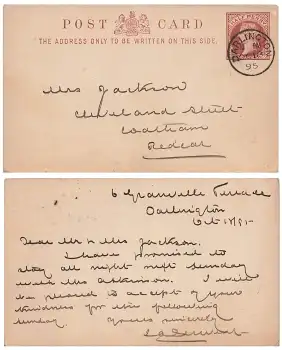 POST CARD
THE ADDRESS ONLY TO BE WRITTEN ON THIS SIDE.
HALFPENNY
DARLINGTON
95
Mrs Jackson
Cleveland Street
Coatham
Redcar
6 Granville Terrace
Darlington
Oct
Dear Mr & Mrs Jackson.
I have promised to
stay all night next Sunday
with Mrs Atkinson. I will
be pleased to accept of your
kindness for the following
Sunday Yours sincerely